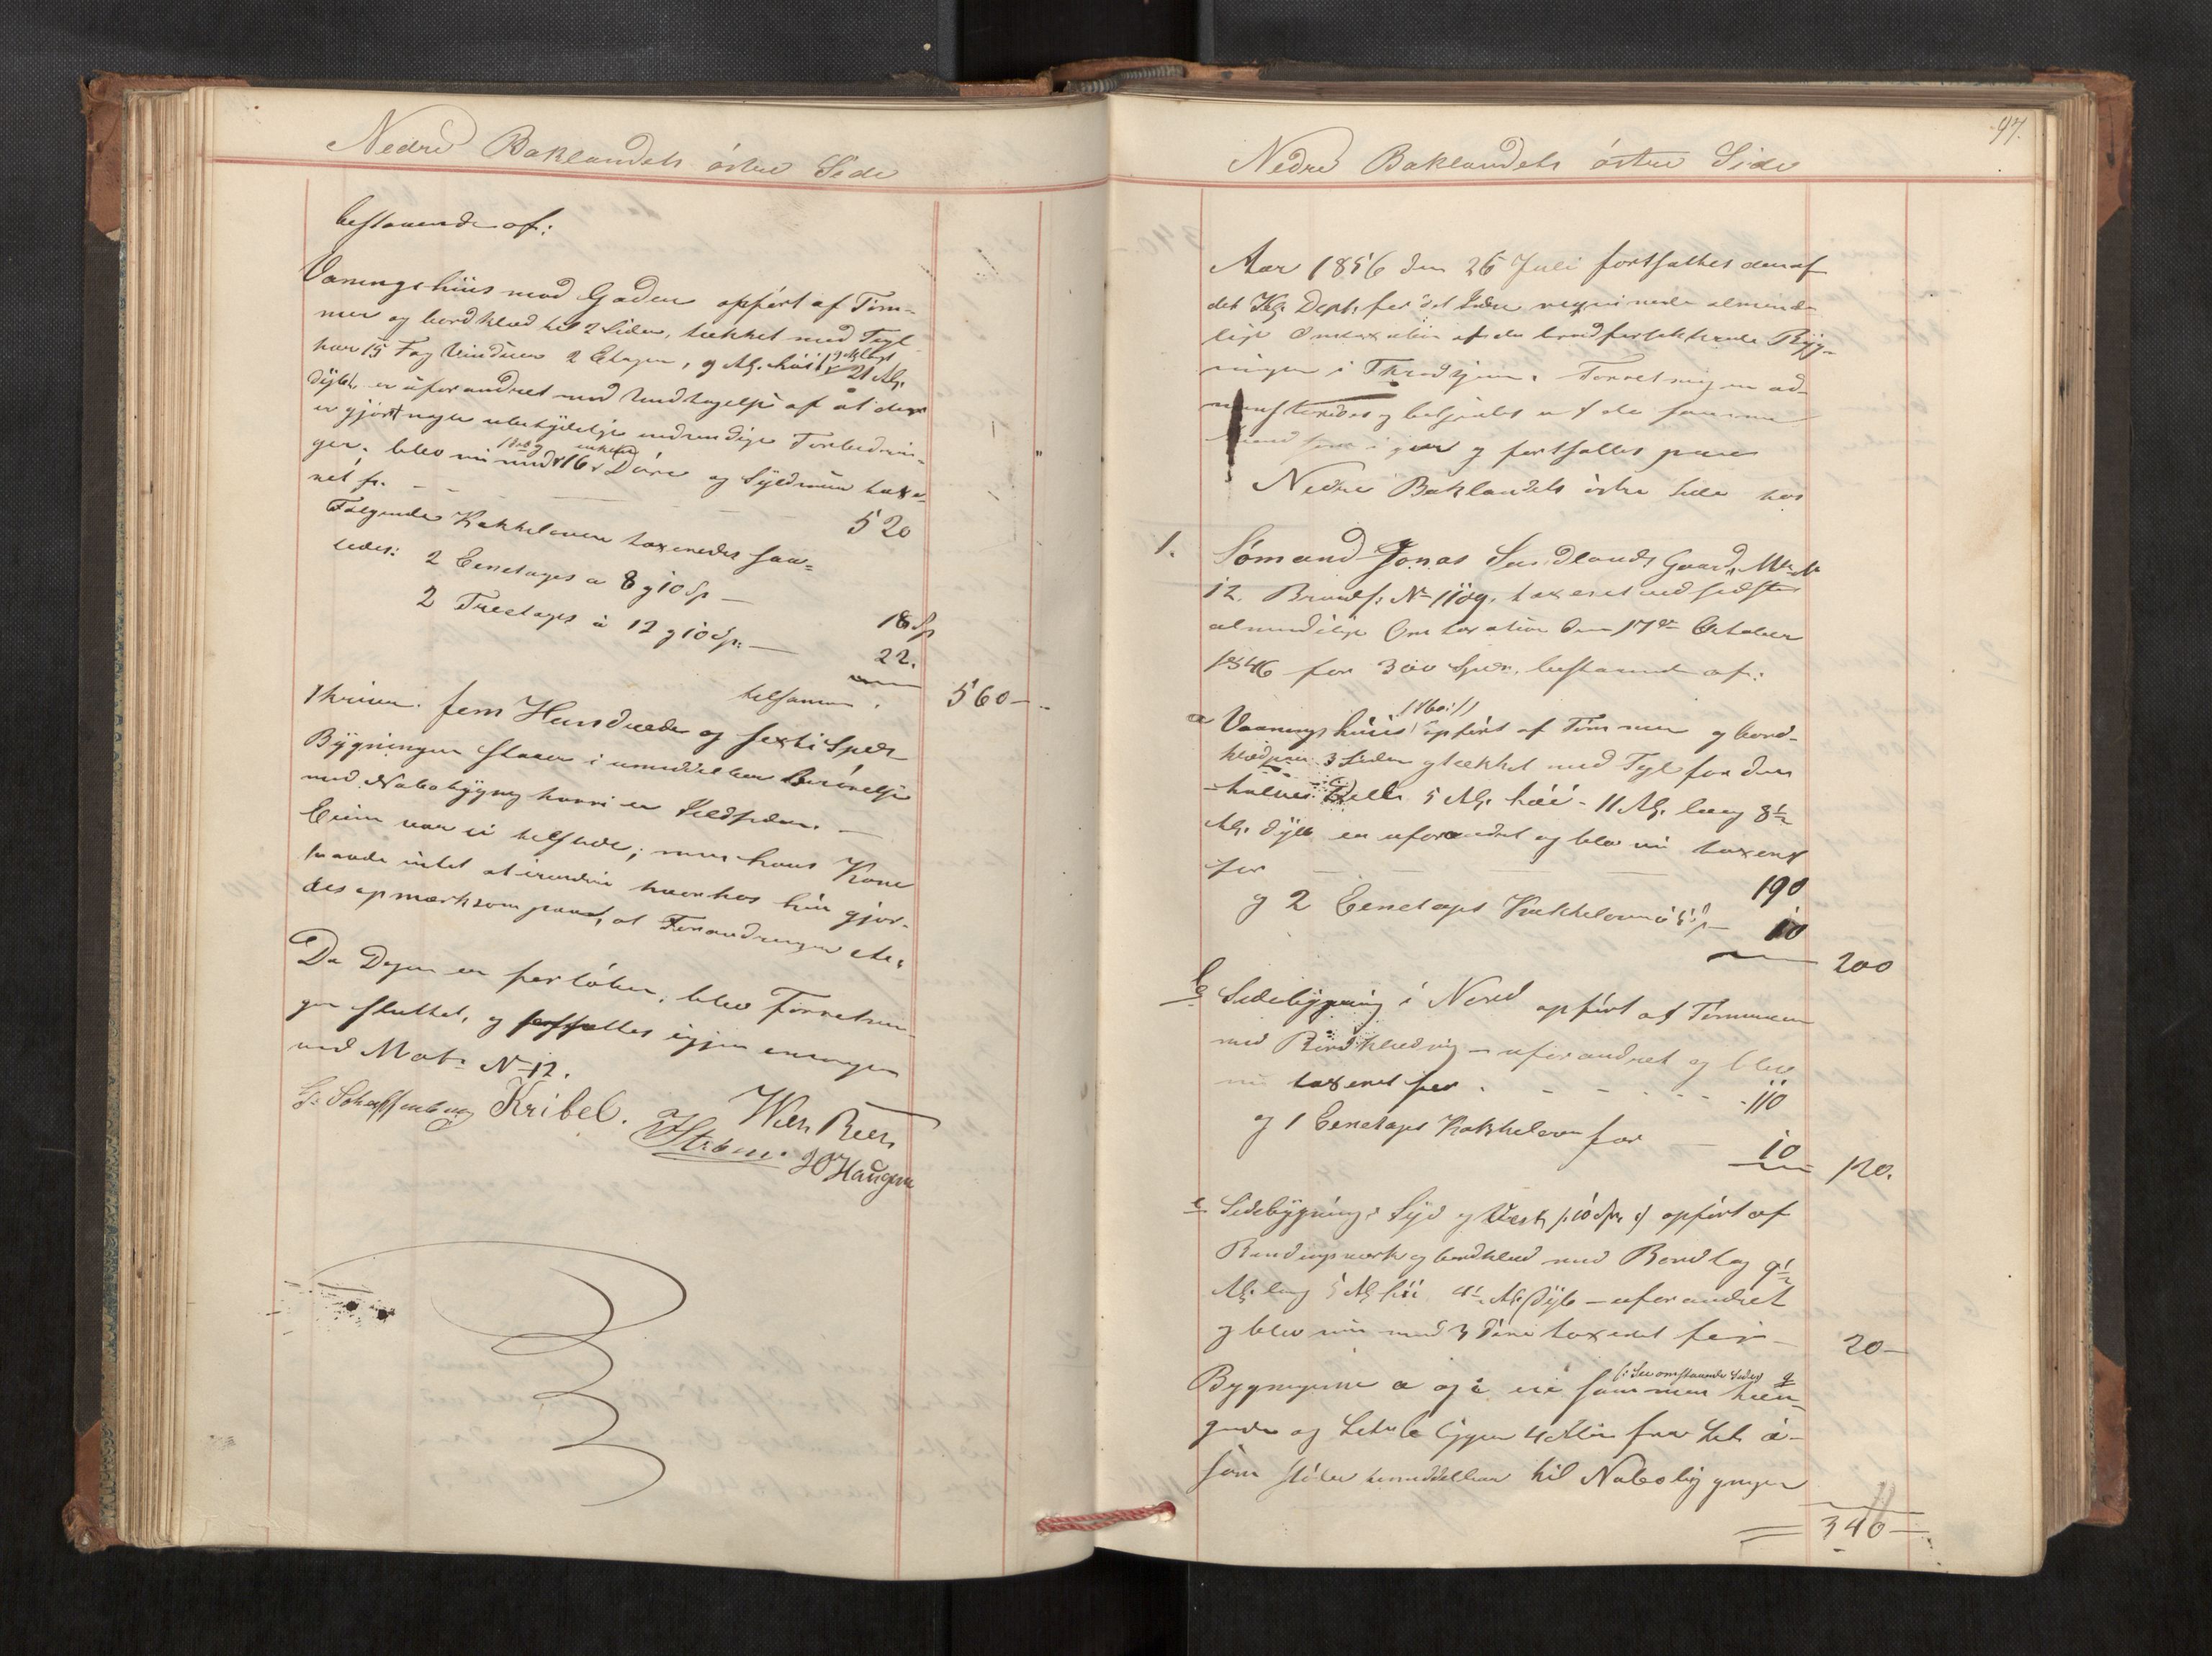 Nedre Baklandets östre Side
bestaaende af:
Vaaningshuus mod Gaden opfört af Töm-
mer og bordklæd til 2 Sider, tækket med Tegl
har 15 Fag Vinduer 2 Etager, 9 Al. höi 19 Al. lang 21 Al.
dyb er uforandret med Undtagelse af at der
er gjört nogle ubetydelige nödvendige Forbedrin-
ger. blev nu med 16 Döre og Syldmuur taxe-
ret for 520
Fölgende Kakkelovne taxeredes saa-
ledes: 2 Eenetages a 8 og 10 Sp — 18 Sp
2 Treetages à 12 og 10 Sp: — 22.
tilsammen 560 —
skriver fem Hundrede og sexti Spdr
Bygningen staaer i umiddelbar Berörelse
med Nabobygning hvori er Ildsteder. —
Eieren var ei tilstede; men hans Kone
havde intet at erindre hvorhos hun gjor-
des opmærksom paa, at Forandringer etc.
Da Dagen er forlöben, blev Forretnin-
gen sluttet, og fortsættes igjen imorgen
med Mat: No 12.
G. Schaffenberg Kribel. Wilh Reets
Ström. JO Haugen
47.
Nedre Baklandets östre Side
Aar 1856 den 26 Juli fortsattes den af
det Kgl. Dept. for det Indre reqvirerede alminde-
lige Omtaxation af de brandforsikkrede Byg-
ninger i Throdhjem. Forretningen ad-
ministreredes og betjentes af de samme
Mænd som igaar og fortsattes paa
Nedre Baklandets östre Side hos
1. Sömand Jonas Sundlands Gaard, Mtr. N
12. Brandf: No 1109. taxeret ved sidste
almindelige Omtaxation den 17de October
1846 for 300 Spdr. bestaaende af:
a Vaaningshuus (:160:) opfört af Tömmer og bord-
klædt paa 3 Sider og tækket med Tegl paa den
halve 5 Al. höi - 11 Al. lang 8½
Al. dyb er uforandret og blev nu taxeret
for 190
og 2 Eenetages Kakkelovne à 5 Sp — 10
200
b Sidebygning i Nord opfört af Tömmer
med Bordklædning — uforandret og blev
nu taxeret for 110
og 1 Eenetages Kakkelovn for 10
120.
c Sidebygning i Syd og Vest (:10 Sp:) opfört af
Bindingsværk og bordklæd med Bordtag 9½
Al. lang 5 Al. höi 4½ Al. dyb — uforandret
og blev nu med 3 Döre taxeret for — 20 —
Bygningerne a og c ere sammen (: See omstaaende Side:) hæn-
gende og Litr. b ligger 4 Alen fra Litr. a -
som stöder umiddelbar til Nabobygningen
340 —